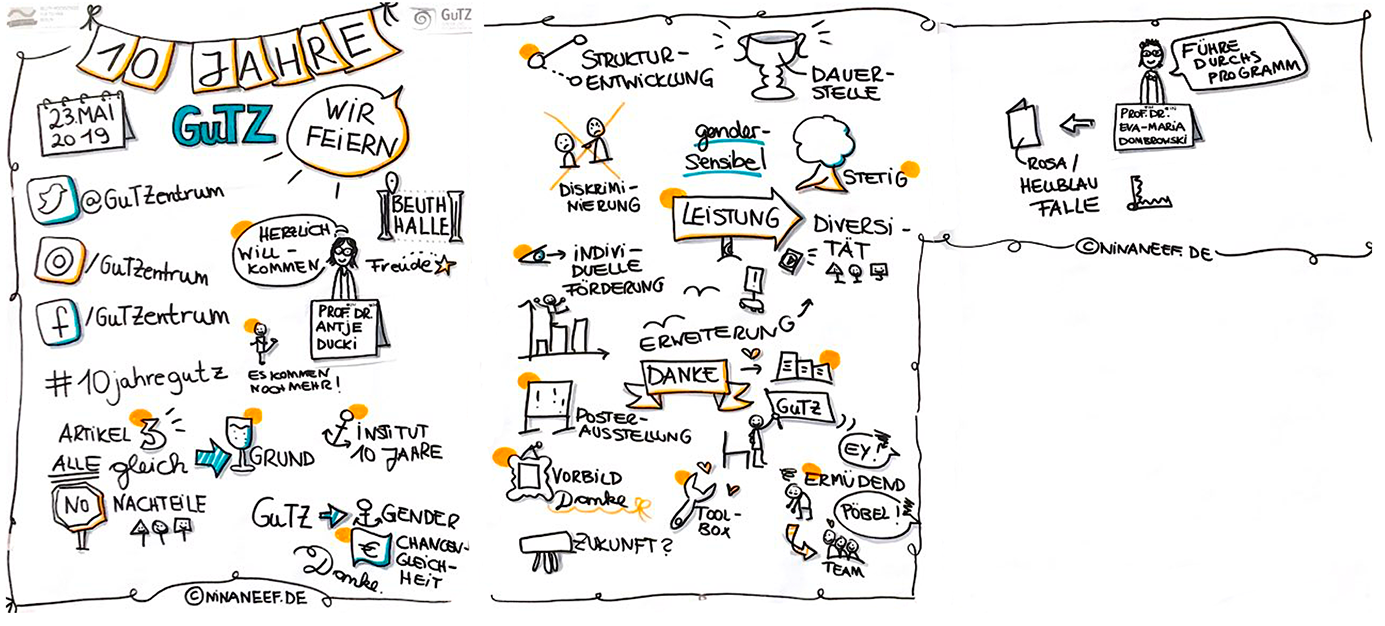 GuTZ
10 JAHRE
23. MAI
2019
GuTZ
WIR
FEIERN
@GuTZentrum
/GuTZentrum
/GuTZentrum
#10jahregutz
BEUTH
HALLE
HERZLICH
WILL-
KOMMEN
Freude
PROF. DR.
ANTJE
DUCKI
ES KOMMEN
NOCH MEHR!
ARTIKEL 3
ALLE gleich
GRUND
INSTITUT
10 JAHRE
NO
NACHTEILE
GuTZ
GENDER
€
CHANCEN-
GLEICH-
HEIT
Danke.
©NINANEEF.DE
STRUKTUR-
ENTWICKLUNG
DAUER-
STELLE
DISKRIMI-
NIERUNG
gender-
Sensibel
STETIG
LEISTUNG
DIVERSI-
TÄT
INDIVI-
DUELLE
FÖRDERUNG
ERWEITERUNG
DANKE
GuTZ
POSTER-
AUSSTELLUNG
EY!
VORBILD
Danke
TOOL-
BOX
ERMÜDEND
PÖBEL!
TEAM
ZUKUNFT?
FÜHRE
DURCHS
PROGRAMM
PROF. DR.
EVA-MARIA
DOMBROWSKI
ROSA/
HELLBLAU
FALLE
©NINANEEF.DE